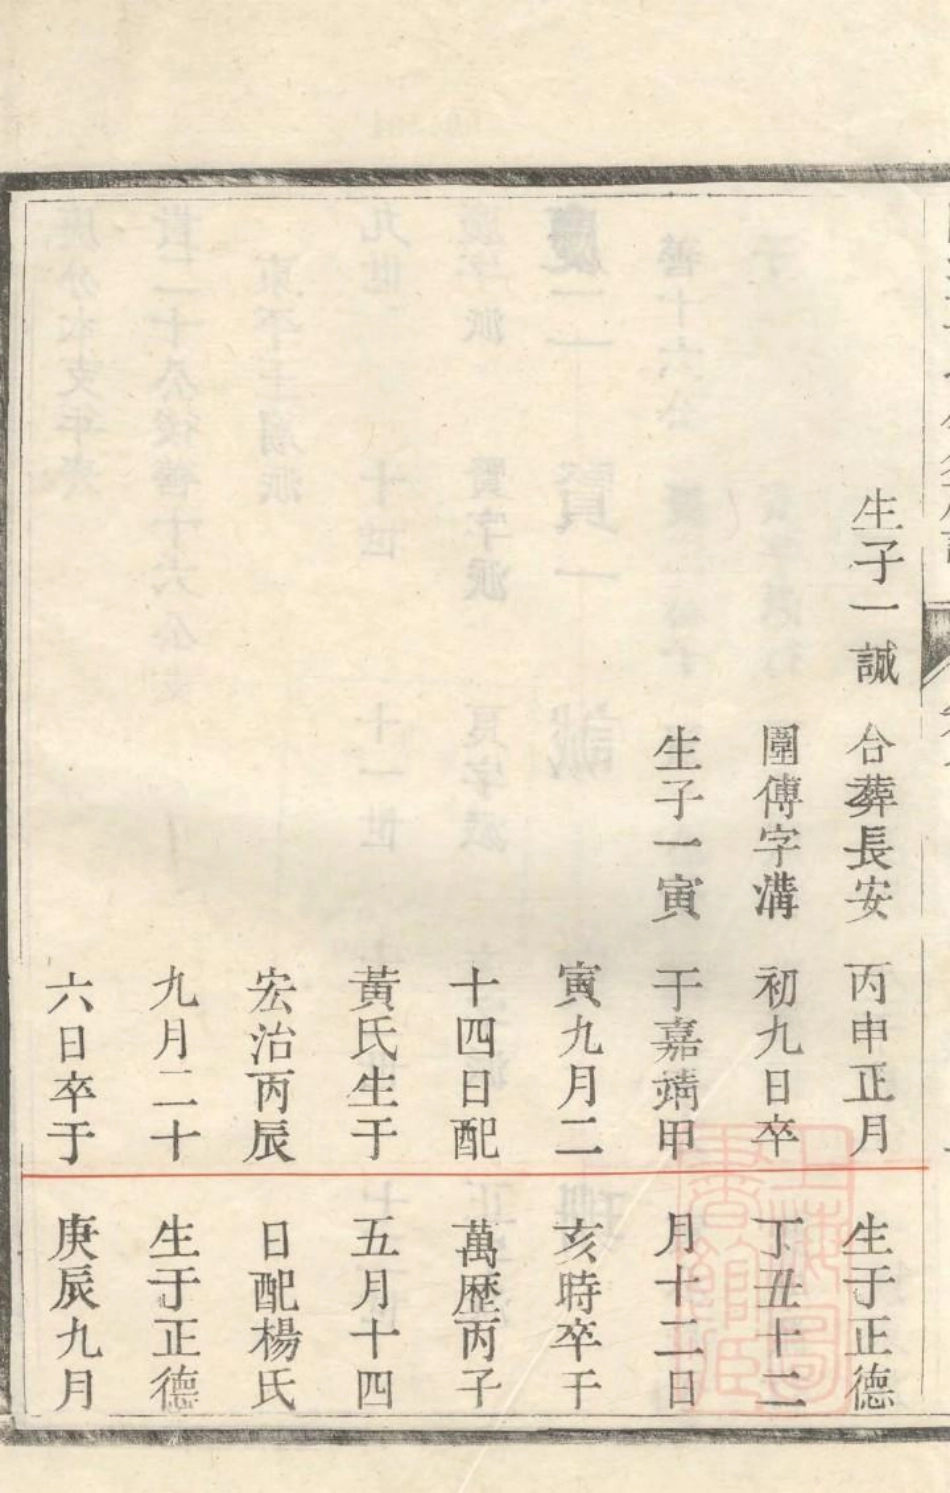 生子一誠
合葬長安
圍傅字溝
生子一寅
丙申正月
初九日卒
于嘉靖甲
寅九月二
十四日配
黃氏生于
宏治丙辰
九月二十
六日卒于
生于正德
丁丑十二
月十二日
亥時卒于
萬歷丙子
五月十四
日配楊氏
生于正德
庚辰九月
上海圖
書館藏